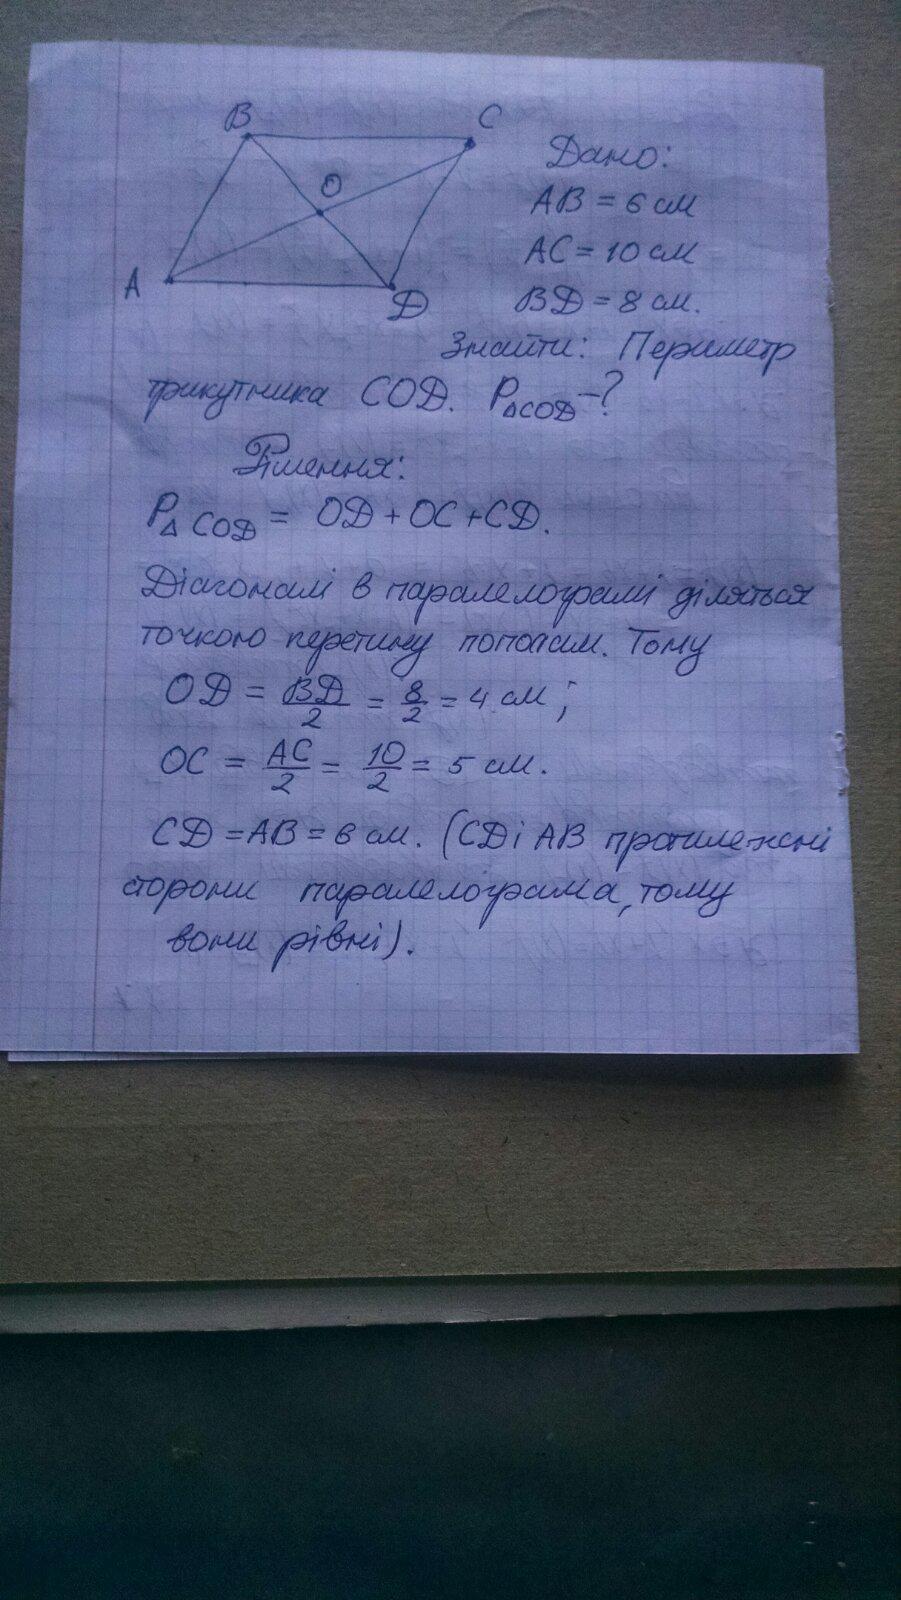 B
C
O
A
D
Дано:
AB = 6 см
AC = 10 см
BD = 8 см.
Знайти: Периметр
трикутника COD. P△COD - ?
Рішення:
P△COD = OD + OC + CD.
Діагоналі в паралелограмі діляться
точкою перетину пополам. Тому
OD = BD/2 = 8/2 = 4 см;
OC = AC/2 = 10/2 = 5 см.
CD = AB = 6 см. (CD і AB протилежні
сторони паралелограма, тому
вони рівні).